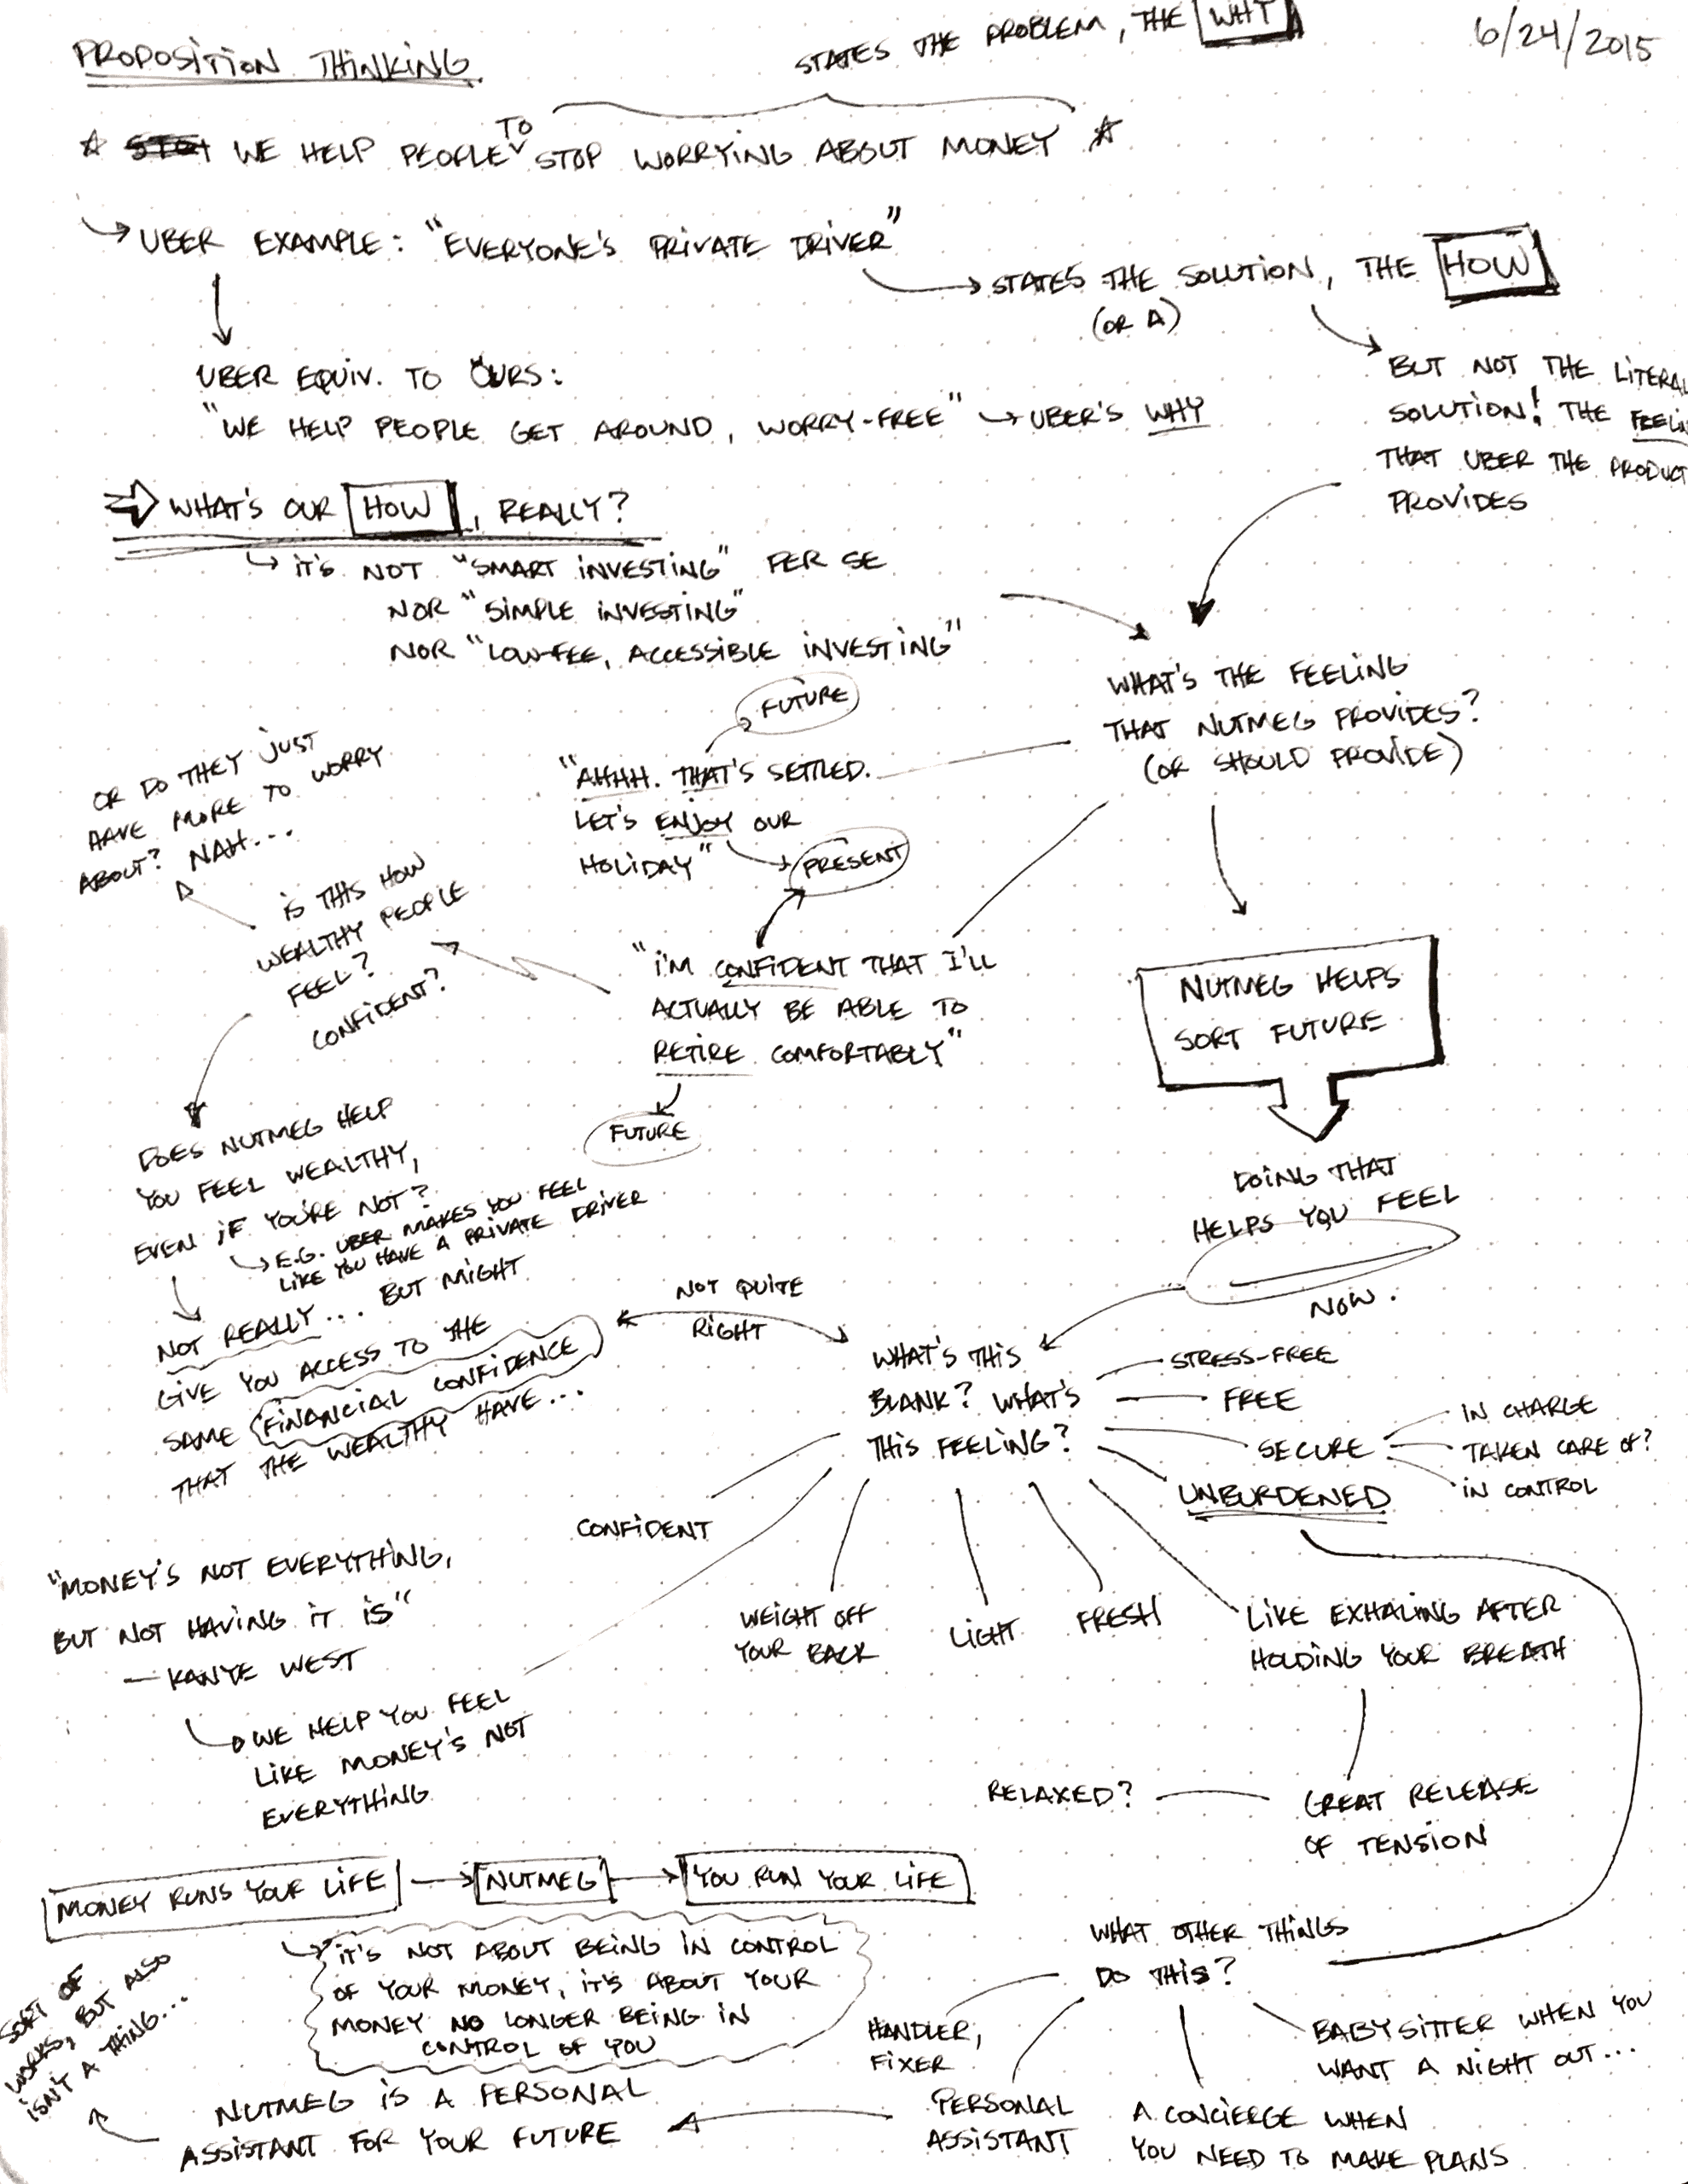 PROPOSITION THINKING
STATES THE PROBLEM, THE WHY
6/24/2015
WE HELP PEOPLE TO STOP WORRYING ABOUT MONEY
UBER EXAMPLE: "EVERYONE'S PRIVATE DRIVER"
STATES THE SOLUTION, THE HOW
(OR A)
BUT NOT THE LITERAL
SOLUTION! THE FEELIN
THAT UBER THE PRODUCT
PROVIDES
UBER EQUIV. TO OURS:
"WE HELP PEOPLE GET AROUND, WORRY-FREE" → UBER'S WHY
WHAT'S OUR HOW, REALLY?
IT'S NOT "SMART INVESTING" PER SE
NOR "SIMPLE INVESTING"
NOR "LOW-FEE, ACCESSIBLE INVESTING"
WHAT'S THE FEELING
THAT NUTMEG PROVIDES?
(OR SHOULD PROVIDE)
FUTURE
"AHHH. THAT'S SETTLED.
LET'S ENJOY OUR
HOLIDAY"
PRESENT
"I'M CONFIDENT THAT I'LL
ACTUALLY BE ABLE TO
RETIRE COMFORTABLY"
FUTURE
OR DO THEY JUST
HAVE MORE TO WORRY
ABOUT? NAH...
IS THIS HOW
WEALTHY PEOPLE
FEEL?
CONFIDENT?
NUTMEG HELPS
SORT FUTURE
DOING THAT
HELPS YOU FEEL
NOW.
DOES NUTMEG HELP
YOU FEEL WEALTHY,
EVEN IF YOU'RE NOT?
E.G. UBER MAKES YOU FEEL
LIKE YOU HAVE A PRIVATE DRIVER
NOT REALLY... BUT MIGHT
GIVE YOU ACCESS TO THE
SAME FINANCIAL CONFIDENCE
THAT THE WEALTHY HAVE...
NOT QUITE
RIGHT
WHAT'S THIS
BLANK? WHAT'S
THIS FEELING?
STRESS-FREE
FREE
SECURE
IN CHARGE
TAKEN CARE OF?
IN CONTROL
UNBURDENED
CONFIDENT
WEIGHT OFF
YOUR BACK
LIGHT
FRESH
LIKE EXHALING AFTER
HOLDING YOUR BREATH
"MONEY'S NOT EVERYTHING,
BUT NOT HAVING IT IS"
— KANYE WEST
WE HELP YOU FEEL
LIKE MONEY'S NOT
EVERYTHING
RELAXED?
GREAT RELEASE
OF TENSION
MONEY RUNS YOUR LIFE → NUTMEG → YOU RUN YOUR LIFE
IT'S NOT ABOUT BEING IN CONTROL
OF YOUR MONEY, IT'S ABOUT YOUR
MONEY NO LONGER BEING IN
CONTROL OF YOU
WHAT OTHER THINGS
DO THIS?
HANDLER,
FIXER
PERSONAL
ASSISTANT
A CONCIERGE WHEN
YOU NEED TO MAKE PLANS
BABYSITTER WHEN YOU
WANT A NIGHT OUT...
NUTMEG IS A PERSONAL
ASSISTANT FOR YOUR FUTURE
SORT OF
WORKS, BUT ALSO
ISN'T A THING...